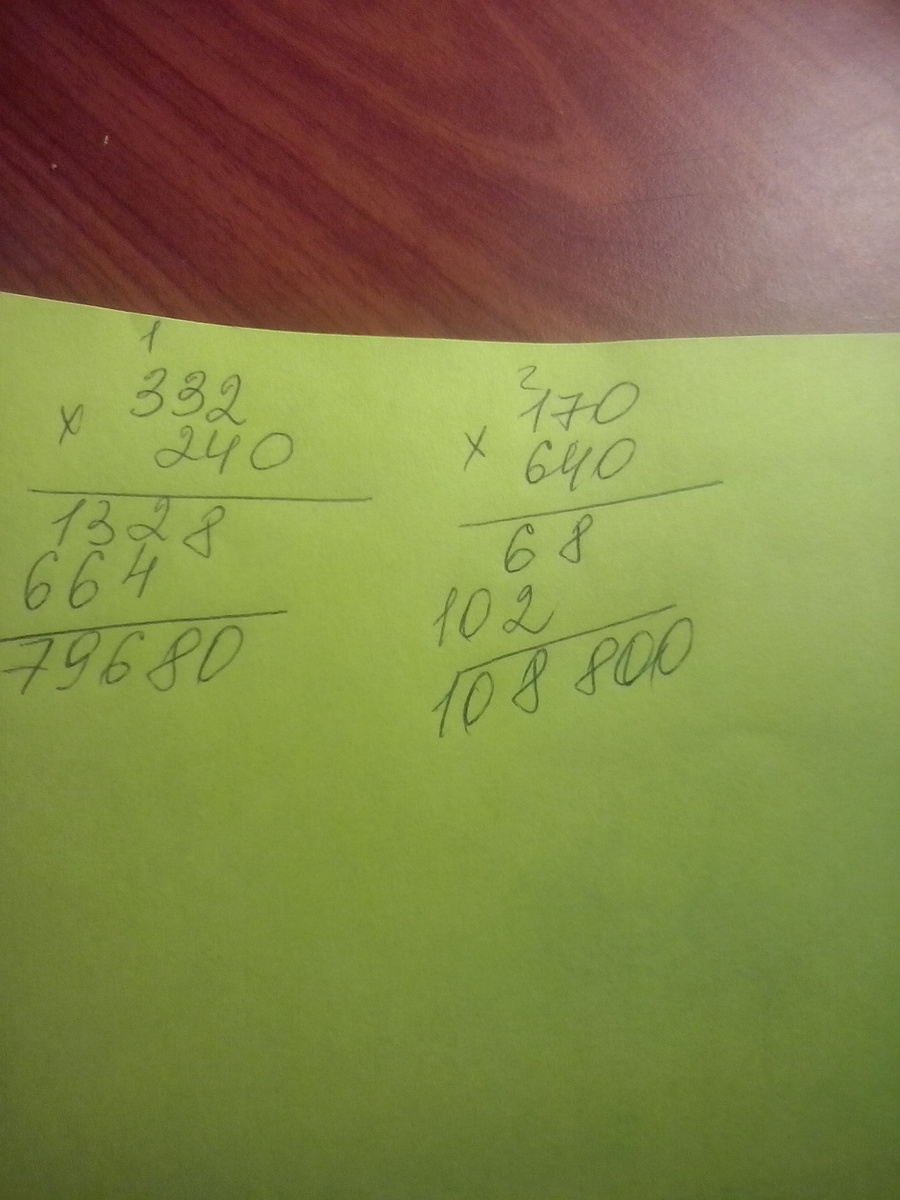 1
332
× 240
1328
664
79680
2
170
× 640
68
102
108 800